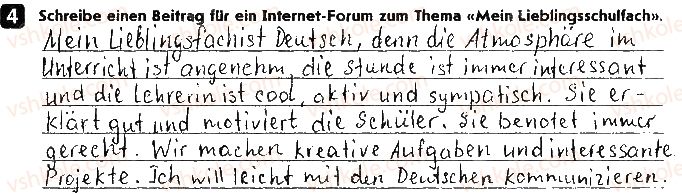 4 Schreibe einen Beitrag für ein Internet-Forum zum Thema «Mein Lieblingsschulfach».
Mein Lieblingsfach ist Deutsch, denn die Atmosphäre im
Unterricht ist angenehm, die Stunde ist immer interessant
und die Lehrerin ist cool, aktiv und sympatisch. Sie er-
klärt gut und motiviert die Schüler. Sie benotet immer
gerecht. Wir machen kreative Aufgaben und interessante
Projekte. Ich will leicht mit den Deutschen kommunizieren.